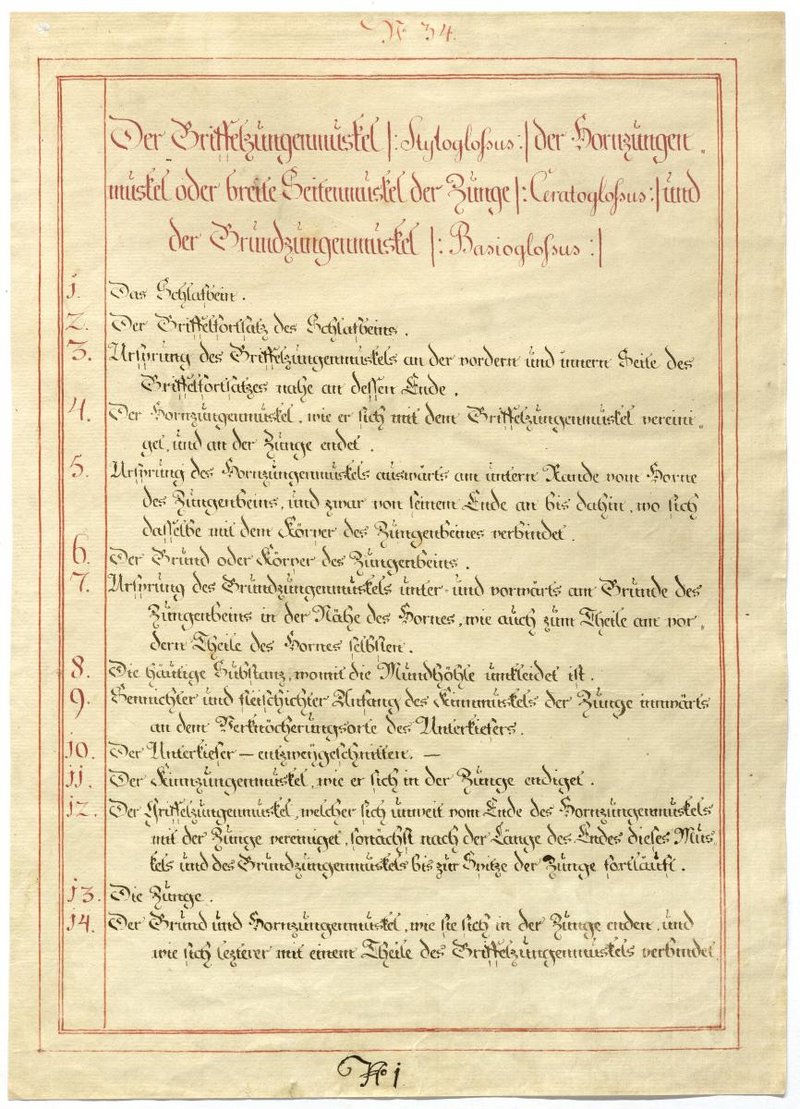 N. 34.
Der Griffelzüngenmüskel |: Styloglossus :| der Hornzüngen
müskel oder breite Seitenmüskel der Zünge |: Ceratoglossus :| und
der Gründzüngenmüskel |: Basioglossus :|
1. Das Schlafbein.
2. Der Griffelfortsatz des Schlafbeins.
3. Ursprüng des Griffelzüngenmüskels an der vordern ünd innern Seite des
Griffelfortsatzes nahe an dessen Ende.
4. Der Hornzüngenmüskel, wie er sich mit dem Griffelzüngenmüskel vereini-
get, ünd an der Zünge endet.
5. Ursprüng des Hornzüngenmüskels auswärts am üntern Rande vom Horne
des Züngenbeins, ünd zwar von seinem Ende an bis dahin, wo sich
dasselbe mit dem Körper des Züngenbeines verbindet.
6. Der Gründ oder Körper des Züngenbeins.
7. Ursprüng des Gründzüngenmüskels ünter- ünd vorwärts am Gründe des
Züngenbeins in der Nähe des Hornes, wie aüch züm Theile am vor-
dern Theile des Hornes selbsten.
8. Die häütige Sübstanz, womit die Mündhöhle ümkleidet ist.
9. Sennichter ünd fleischichter Anfang des Kinnmüskels der Zünge innwärts
an dem Verknöcherüngsorte des Unterkiefers.
10. Der Unterkiefer – entzweygeschnitten. –
11. Der Kinnzüngenmüskel, wie er sich in der Zünge endiget.
12. Der Griffelzüngenmüskel, welcher sich ünweit vom Ende des Hornzüngenmüskels
mit der Zünge vereiniget, sonächst nach der Länge des Endes dieses Müs-
kels ünd des Gründzüngenmüskels bis zür Spitze der Zünge fortläüft.
13. Die Zünge.
14. Der Gründ ünd Hornzüngenmüskel, wie sie sich in der Zünge enden, ünd
wie sich lezterer mit einem Theile des Griffelzüngenmüskels verbindet.
No 1